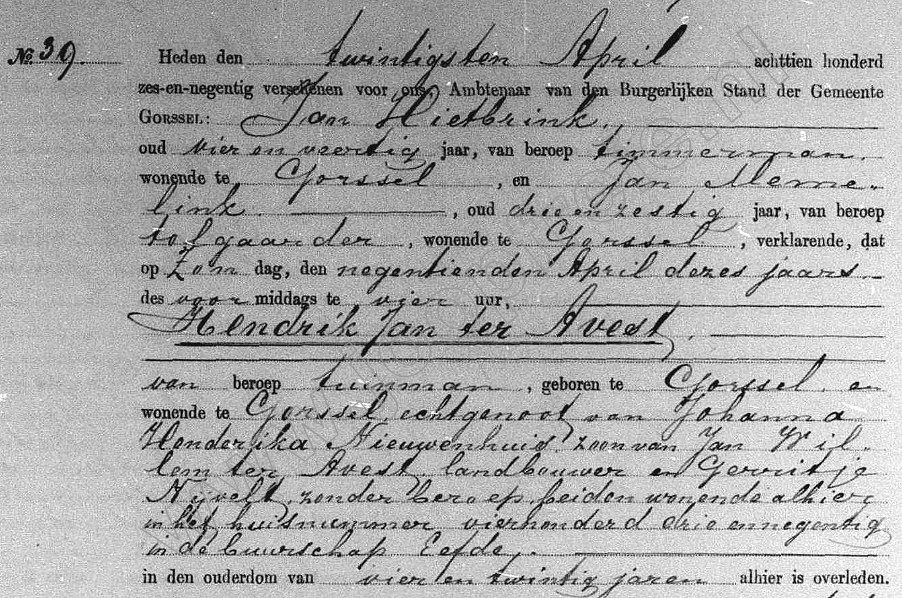 No. 39. Heden den twintigsten April achttien honderd
zes-en-negentig verschenen voor ons, Ambtenaar van den Burgerlijken Stand der Gemeente
GORSSEL: Jan Hietbrink.
oud vier en veertig jaar, van beroep timmerman.
wonende te Gorssel, en Jan Meme-
link., oud drie en zestig jaar, van beroep
tolgaarder, wonende te Gorssel, verklarende, dat
op Zon dag, den negentienden April dezes jaars
des voor middags te vier uur,
Hendrik Jan ter Avest
van beroep tuinman, geboren te Gorssel en
wonende te Gorssel, echtgenoot van Johanna
Henderika Nieuwenhuis. zoon van Jan Wil-
lem ter Avest, landbouwer en Gerritje
Nyvelt, zonder beroep, beiden wonende alhier
in het huis nummer vierhonderd drie en negentig
in de buurschap Eefde,
in den ouderdom van vier en twintig jaren alhier is overleden.